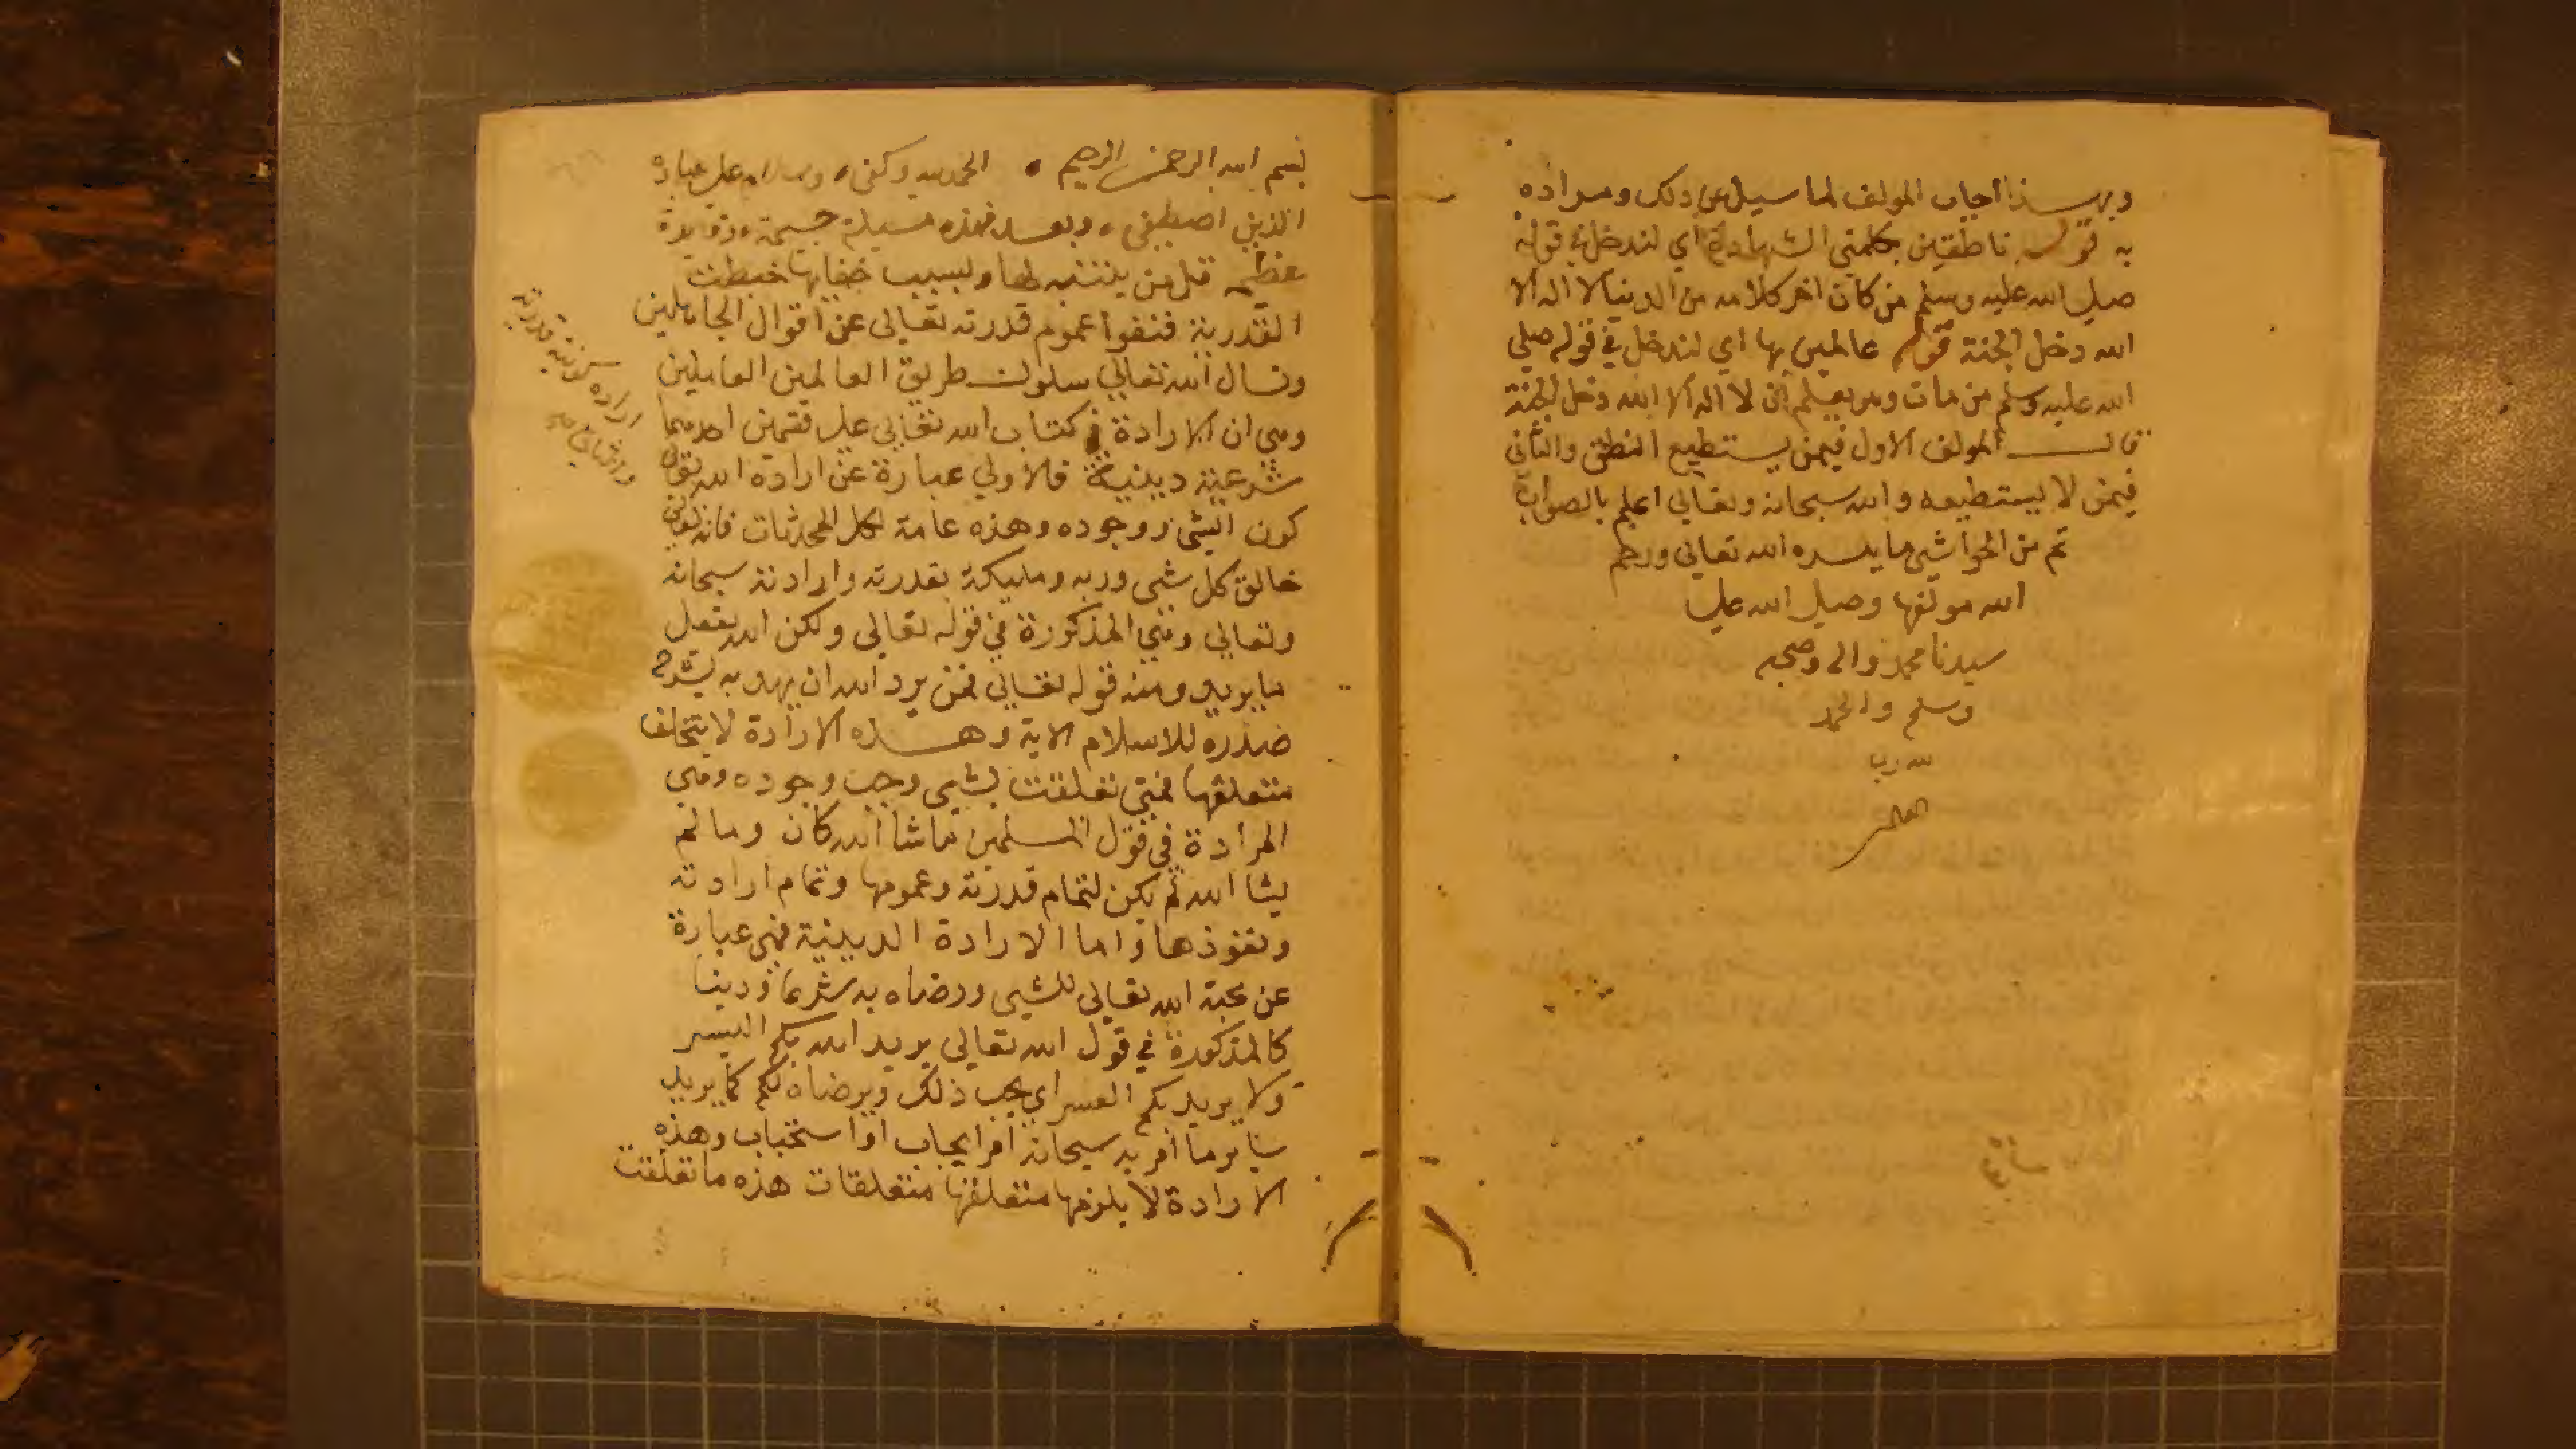 وبهذا اجاب المولف لما سيل عن ذلك ومراده
به قوله ناطقين بكلمتي الشهادة اي لندخل في قوله
صلي الله عليه وسلم من كان اخر كلامه من الدنيا لا اله الا
الله دخل الجنة قوله عالمين بها اي لندخل في قوله صلي
الله عليه وسلم من مات وهو يعلم ان لا اله الا الله دخل الجنة
قال المولف الاول فيمن يستطيع النطق والثاني
فيمن لا يستطيعه والله سبحانه وتعالي اعلم بالصواب
تم من الحواشي ما يسره الله تعالي ورحم
الله مولفها وصلي الله علي
سيدنا محمد واله وصحبه
وسلم والحمد
لله رب
العالمين
بسم الله الرحمن الرحيم الحمد لله وكفي وسلام علي عباده
الذين اصطفي وبعد فهذه مسيلة جسيمة وفايدة
عظيمه قل من يتنبه لها وبسبب خفايها خبطت
القدرية فنفوا عموم قدرته تعالي عن اقوال الجاهلين
ونسال الله تعالي سلوك طريق العالمين العاملين
وهي ان الارادة في كتاب الله تعالي علي قسمين احدهما
شرعية دينية فالاولي عبارة عن ارادة الله تعالي
كون الشي ووجوده وهذه عامة لكل المحدثات فانه تعالي
خالق كل شي وربه ومليكه بقدرته وارادته سبحانه
وتعالي وهي المذكورة في قوله تعالي ولكن الله يفعل
ما يريد ومنه قوله تعالي فمن يرد الله ان يهديه يشرح
صدره للاسلام الاية وهذه الارادة لا يتخلف
متعلقها فمتي تعلقت بشي وجب وجوده وهي
المرادة في قول المسلمين ما شا الله كان وما لم
يشا الله لم يكن لتمام قدرته وعمومها وتمام ارادته
ونفوذها واما الارادة الدينية فهي عبارة
عن محبة الله تعالي للشي ورضاه به شرعا ودينا
كالمذكورة في قول الله تعالي يريد الله بكم اليسر
ولا يريد بكم العسر اي يحب ذلك ويرضاه لكم كما يريد
ساير ما امر به سبحانه امر ايجاب او استحباب وهذه
الارادة لا يلزمها متعلقها متعلقات هذه ما تعلقت
ارادة كونية قدرية